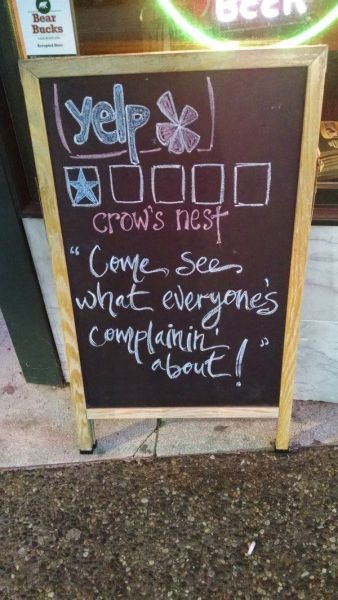 Bear
Bucks
Accepted Here
BECK
yelp
crow's nest
"Come see
what everyone's
complainin'
about!"